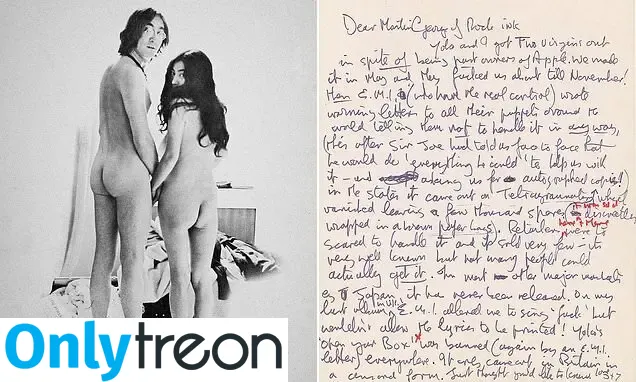 Dear Martin
Yoko and I got Two Virgins out
in spite of being part owners of Apple. We made
it in May and they fucked us about till November!
Then E.M.I. (who have the real control) wrote
warning letters to all their puppets around the
world telling them not to handle it in any way,
this after Sir Joe had told us face to face that
he would do 'everything he could' to help us with
it - and asking us for autographed copies!
In the states it came out on Tetragrammaton which
vanished leaving a few thousand spares
wrapped in brown paper bags. Retailers were
scared to handle it and it sold very few - its
very well known but not many people could
actually get it. In most other major markets
eg Japan it has never been released. On my
last album E.M.I. allowed me to sing 'fuck' but
wouldn't allow the lyrics to be printed! Yoko's
'open your Box' was banned (again by an E.M.I.
letter) everywhere. It only came out in Britain in
a censored form. Just thought you'd like to know
Onlytreon